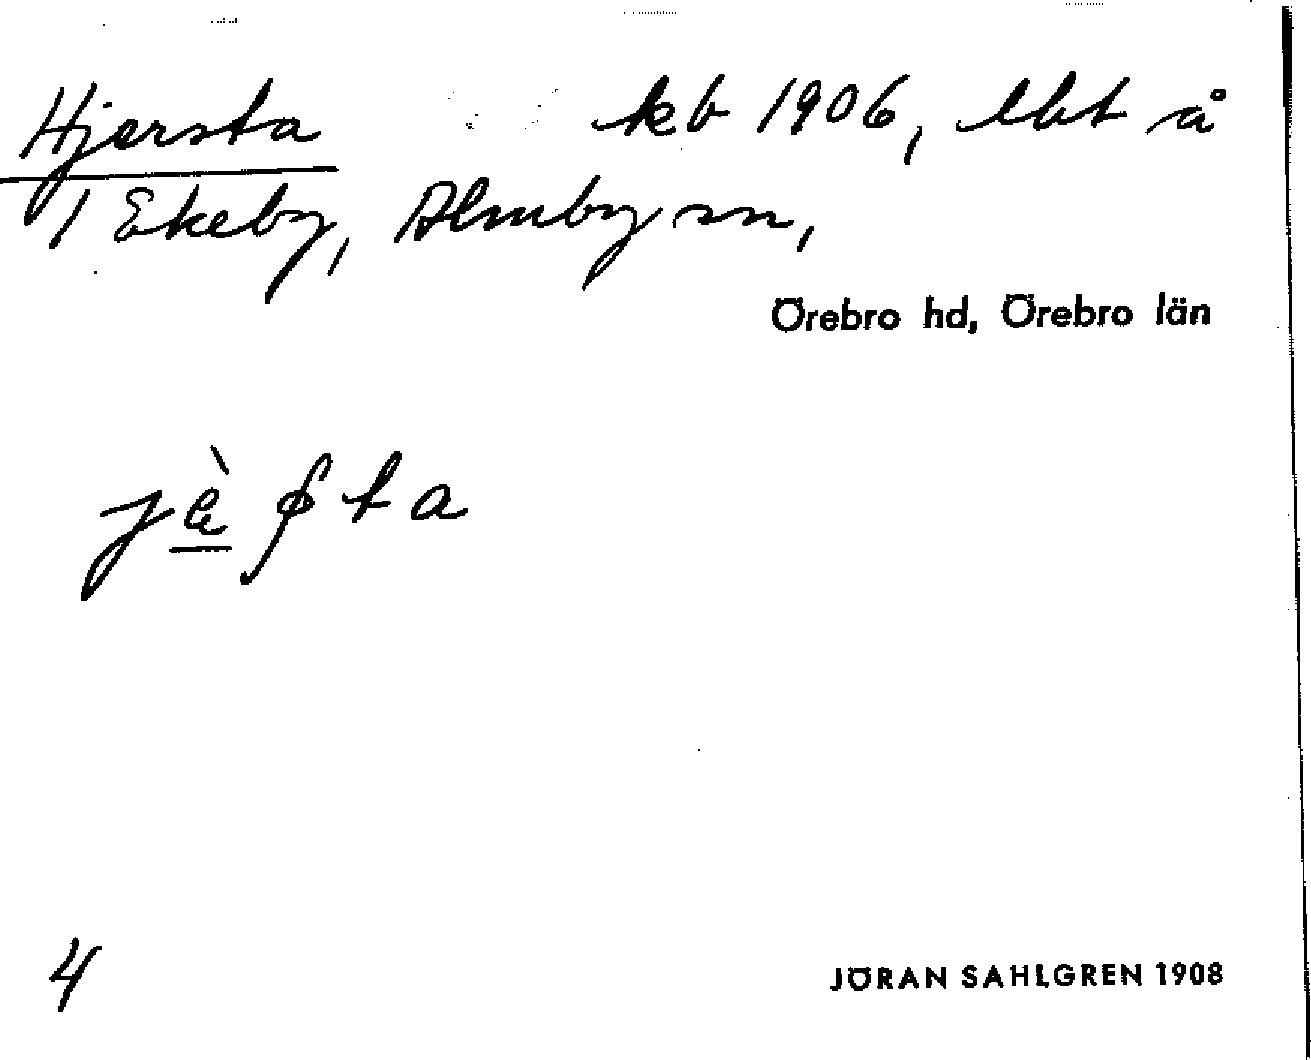 Hjersta kb 1906, lht å
1 Ekeby, Almby sn,
Örebro hd, Örebro län
4
JÖRAN SAHLGREN 1908